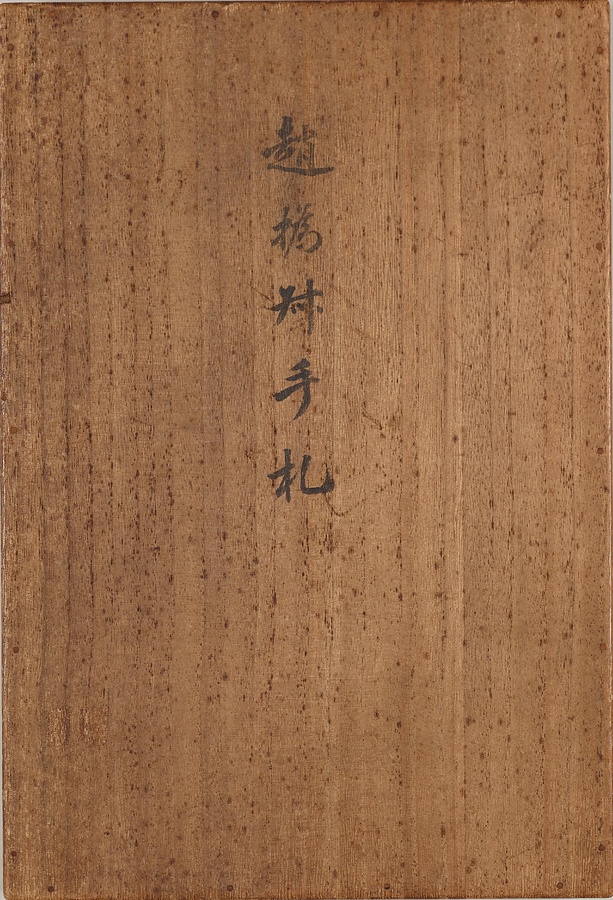 趙撝叔手札